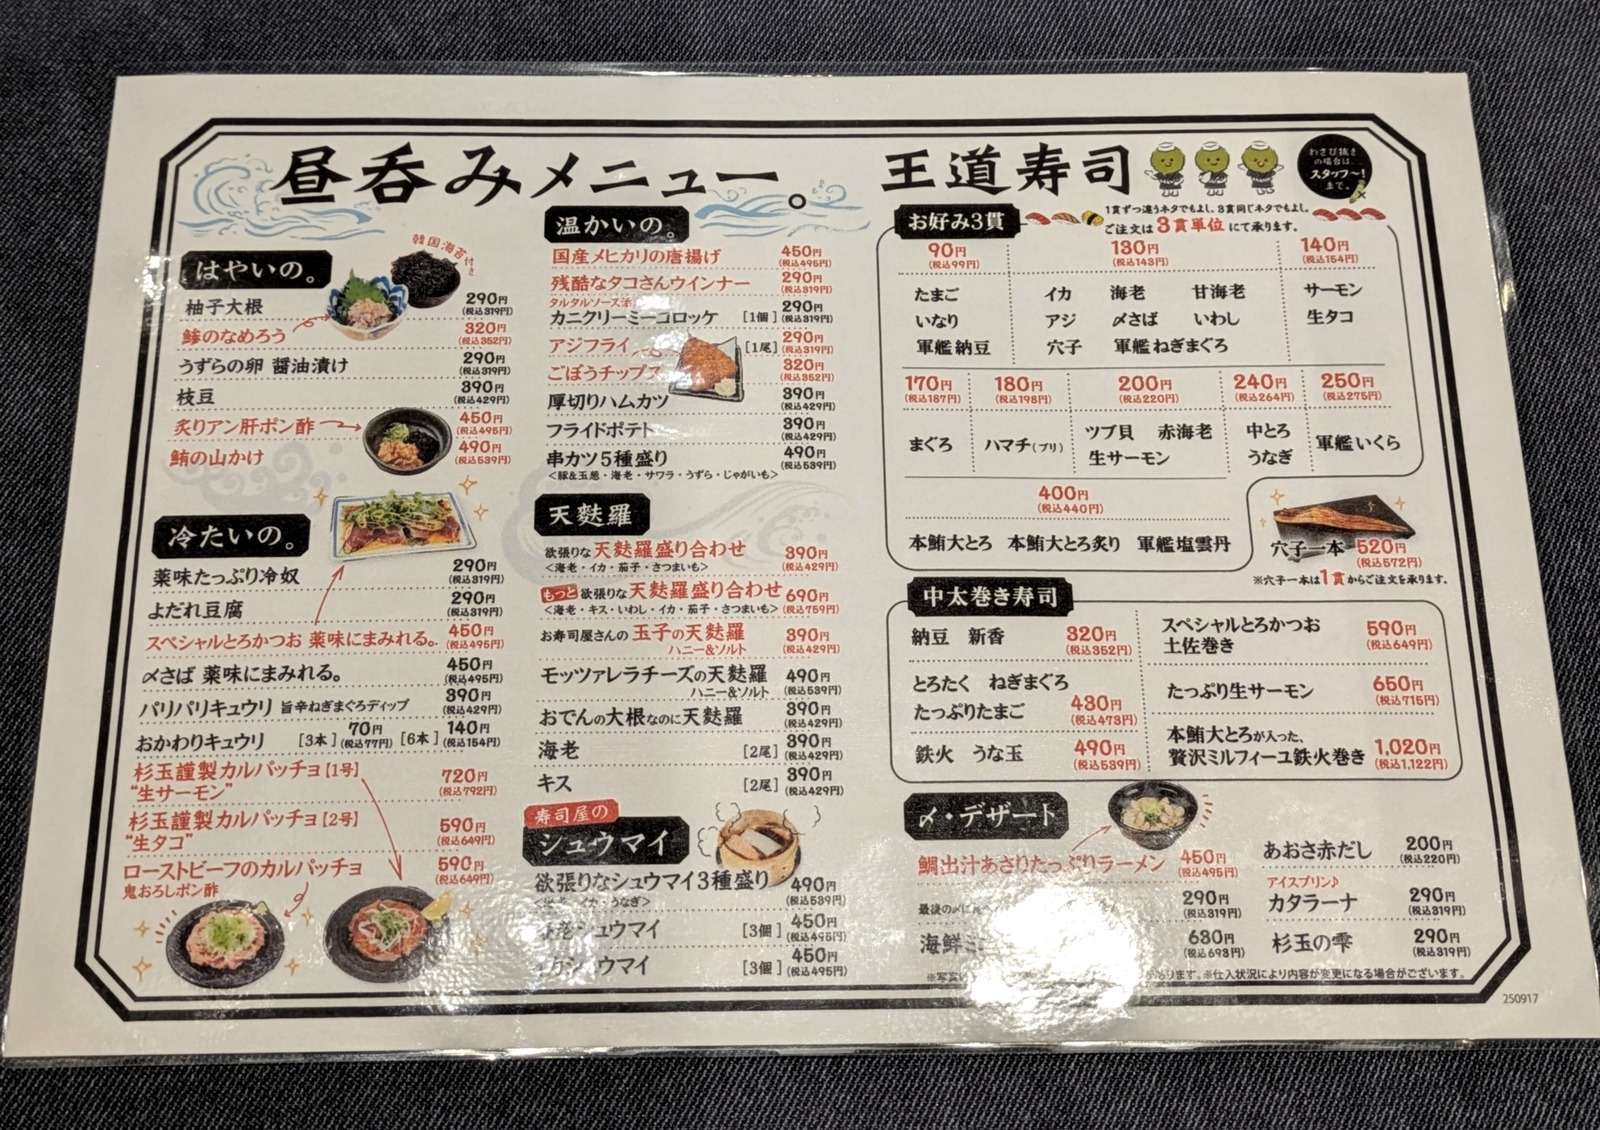 昼呑みメニュー。
はやいの。
韓国海苔付き
柚子大根 290円 (税込319円)
鯵のなめろう 320円 (税込352円)
うずらの卵 醤油漬け 290円 (税込319円)
枝豆 390円 (税込429円)
炙りアン肝ポン酢 450円 (税込495円)
鮪の山かけ 490円 (税込539円)
冷たいの。
薬味たっぷり冷奴 290円 (税込319円)
よだれ豆腐 290円 (税込319円)
スペシャルとろかつお 薬味にまみれる。 450円 (税込495円)
〆さば 薬味にまみれる。 450円 (税込495円)
パリパリキュウリ 旨辛ねぎまぐろディップ 390円 (税込429円)
おかわりキュウリ [3本] 70円 (税込77円) [6本] 140円 (税込154円)
杉玉謹製カルパッチョ【1号】
“生サーモン” 720円 (税込792円)
杉玉謹製カルパッチョ【2号】
“生タコ” 590円 (税込649円)
ローストビーフのカルパッチョ 590円 (税込649円)
鬼おろしポン酢
温かいの。
国産メヒカリの唐揚げ 450円 (税込495円)
残酷なタコさんウインナー 290円 (税込319円)
タルタルソース添
カニクリーミーコロッケ [1個] 290円 (税込319円)
アジフライ [1尾] 290円 (税込319円)
ごぼうチップス 320円 (税込352円)
厚切りハムカツ 390円 (税込429円)
フライドポテト 390円 (税込429円)
串カツ5種盛り 490円 (税込539円)
<豚&玉葱・海老・サワラ・うずら・じゃがいも>
天麩羅
欲張りな天麩羅盛り合わせ 390円 (税込429円)
<海老・イカ・茄子・さつまいも>
もっと欲張りな天麩羅盛り合わせ 690円 (税込759円)
<海老・キス・いわし・イカ・茄子・さつまいも>
お寿司屋さんの玉子の天麩羅 390円 (税込429円)
ハニー&ソルト
モッツァレラチーズの天麩羅 490円 (税込539円)
ハニー&ソルト
おでんの大根なのに天麩羅 390円 (税込429円)
海老 [2尾] 390円 (税込429円)
キス [2尾] 390円 (税込429円)
寿司屋の
シュウマイ
欲張りなシュウマイ3種盛り 490円 (税込539円)
イカ・うなぎ>
シュウマイ [3個] 450円 (税込495円)
シュウマイ [3個] 450円 (税込495円)
王道寿司
わさび抜き
の場合は、
スタッフ〜!
まで。
お好み3貫
1貫ずつ違うネタでもよし、3貫同じネタでもよし。
ご注文は3貫単位にて承ります。
90円 (税込99円) 130円 (税込143円) 140円 (税込154円)
たまご イカ 海老 甘海老 サーモン
いなり アジ 〆さば いわし 生タコ
軍艦納豆 穴子 軍艦ねぎまぐろ
170円 (税込187円) 180円 (税込198円) 200円 (税込220円) 240円 (税込264円) 250円 (税込275円)
まぐろ ハマチ(ブリ) ツブ貝 赤海老 中とろ 軍艦いくら
生サーモン うなぎ
400円 (税込440円)
本鮪大とろ 本鮪大とろ炙り 軍艦塩雲丹
穴子一本 520円 (税込572円)
※穴子一本は1貫からご注文を承ります。
中太巻き寿司
納豆 新香 320円 (税込352円)
とろたく ねぎまぐろ
たっぷりたまご 430円 (税込473円)
鉄火 うな玉 490円 (税込539円)
スペシャルとろかつお
土佐巻き 590円 (税込649円)
たっぷり生サーモン 650円 (税込715円)
本鮪大とろが入った、
贅沢ミルフィーユ鉄火巻き 1,020円 (税込1,122円)
〆・デザート
鯛出汁あさりたっぷりラーメン 450円 (税込495円)
最後の〆に 290円 (税込319円)
海鮮ミニ 630円 (税込693円)
あおさ赤だし 200円 (税込220円)
アイスプリン♪
カタラーナ 290円 (税込319円)
杉玉の雫 290円 (税込319円)
※写真は あります。※仕入状況により内容が変更になる場合がございます。
250917